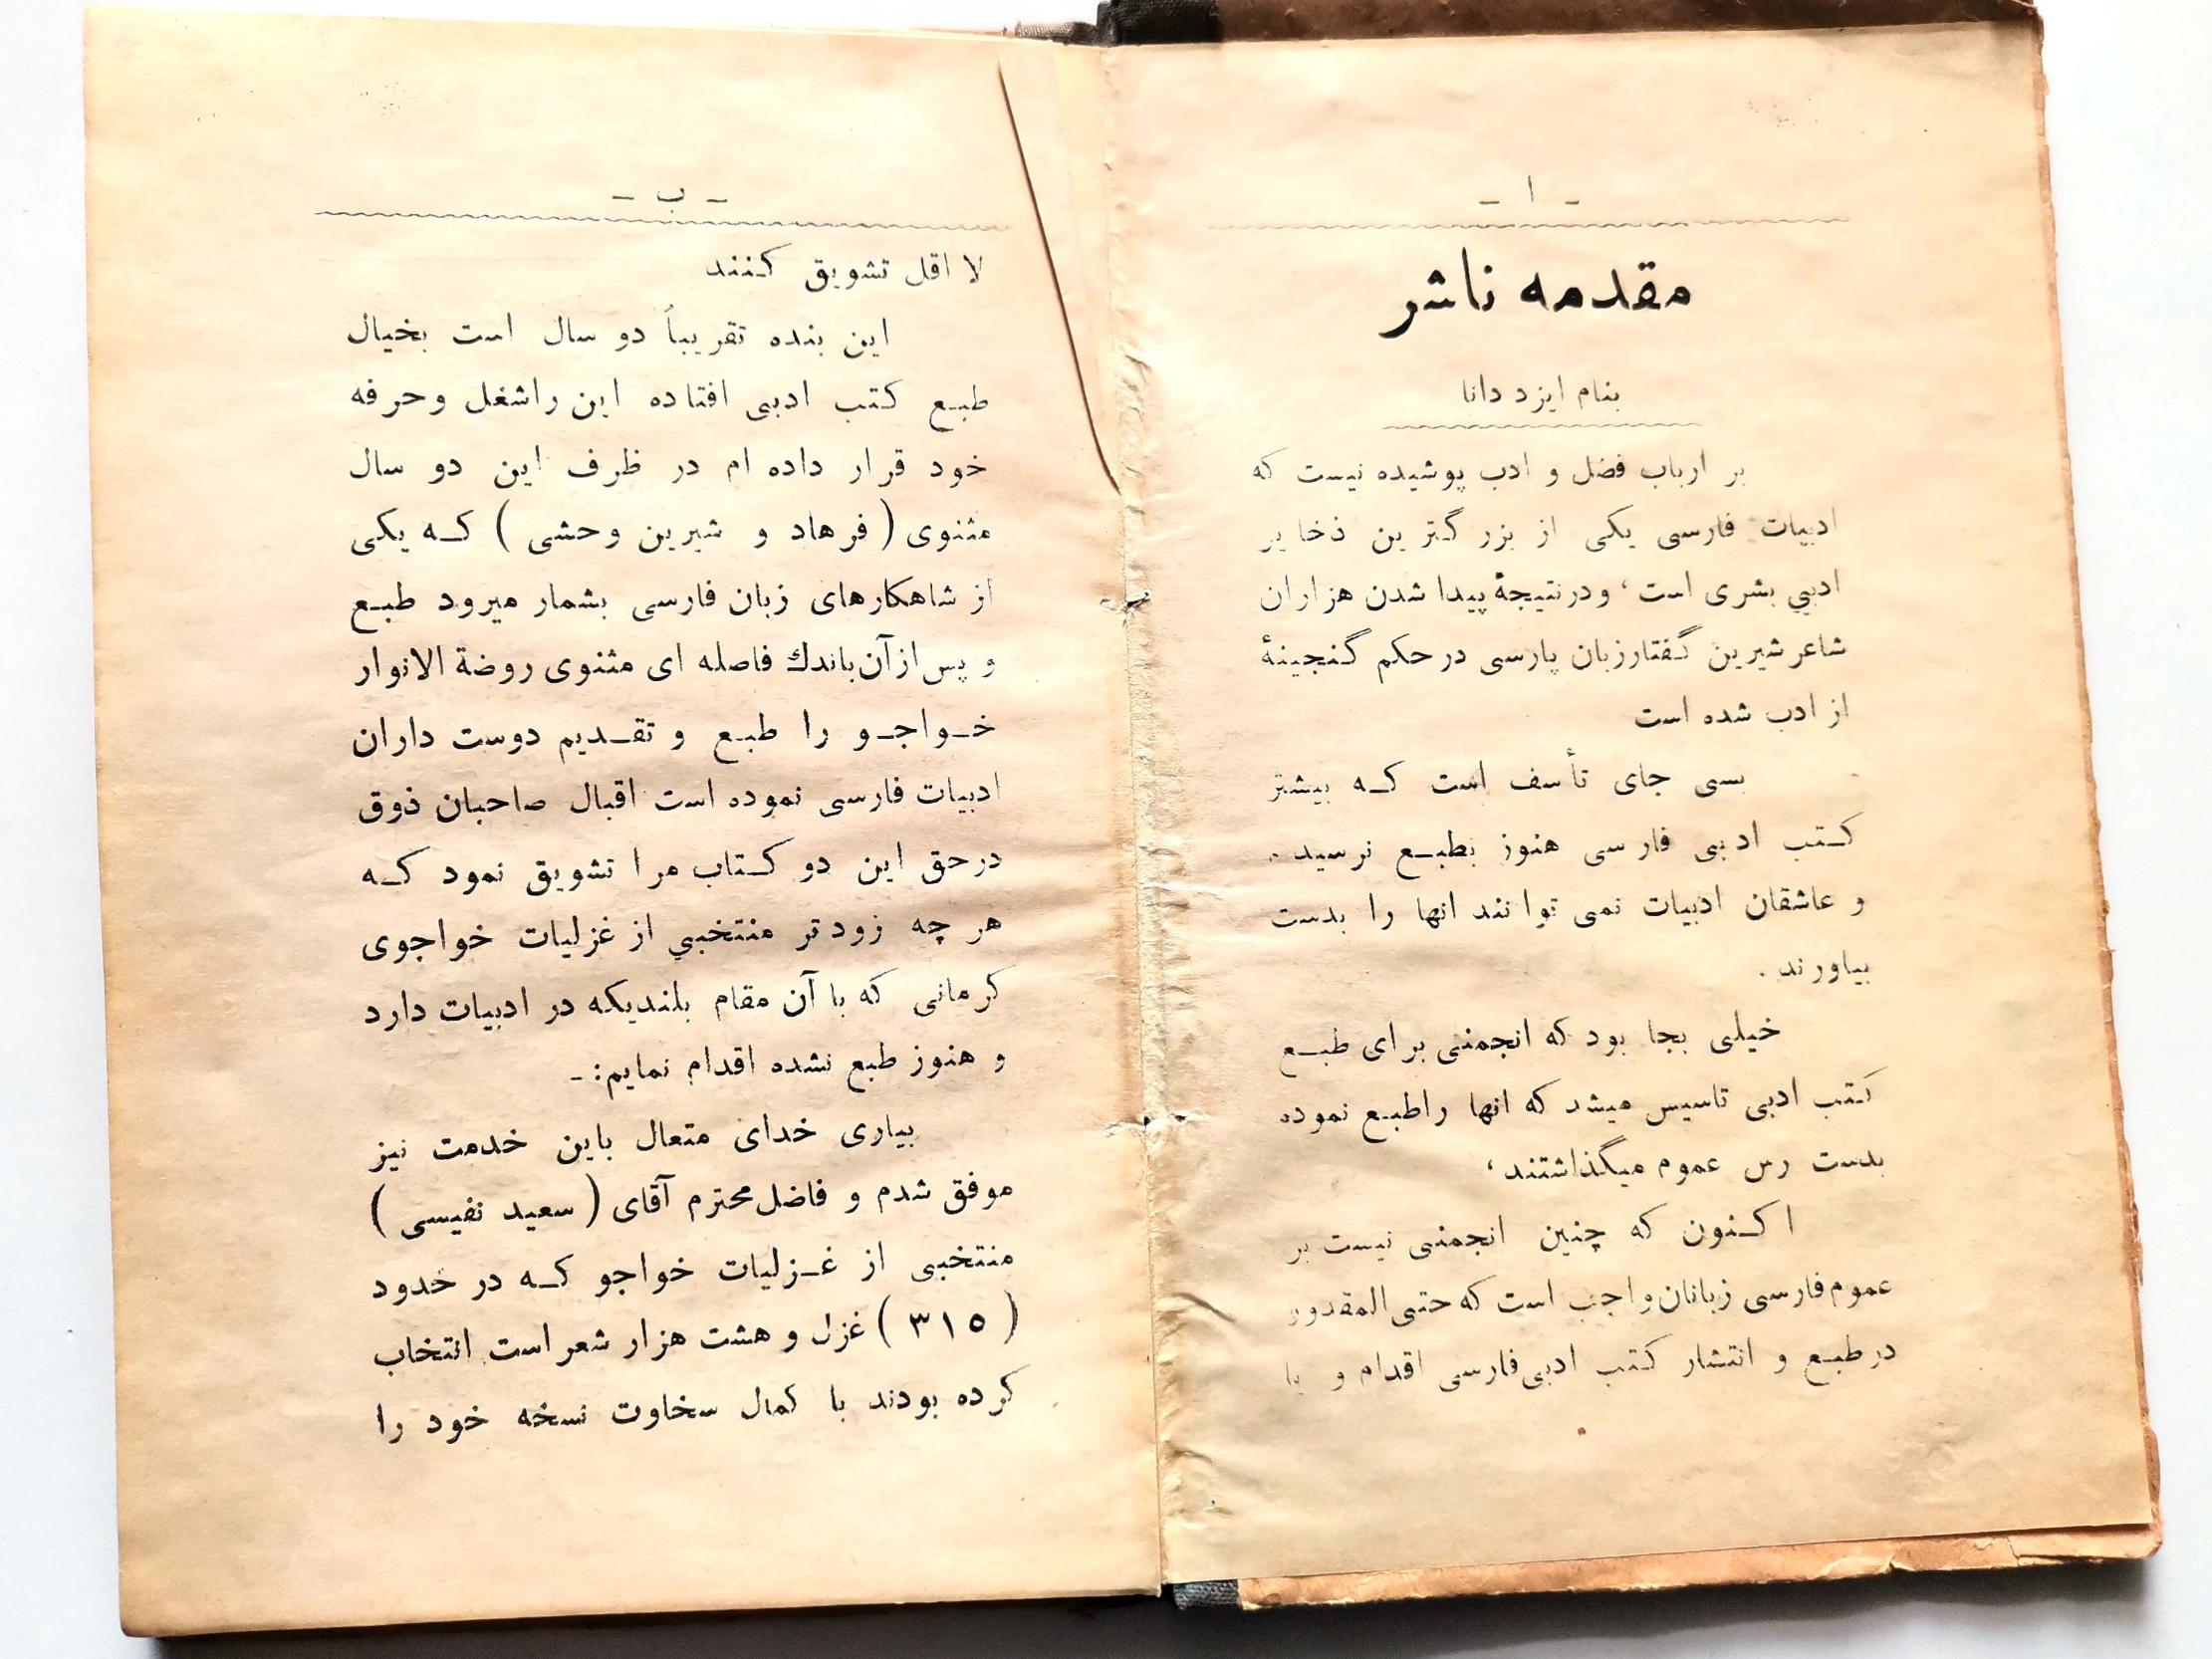 - ا -
مقدمه ناشر
بنام ایزد دانا
بر ارباب فضل و ادب پوشیده نیست که
ادبیات فارسی یکی از بزرگترین ذخایر
ادبي بشری است، و در نتیجهٔ پیدا شدن هزاران
شاعر شیرین گفتار زبان پارسی در حکم گنجینهٔ
از ادب شده است
بسی جای تأسف است که بیشتر
کتب ادبی فارسی هنوز بطبع نرسیده
و عاشقان ادبیات نمی توانند انها را بدست
بیاورند .
خیلی بجا بود که انجمنی برای طبع
کتب ادبی تاسیس میشد که انها را طبع نموده
بدست رس عموم میگذاشتند،
اکنون که چنین انجمنی نیست بر
عموم فارسی زبانان واجب است که حتی المقدور
در طبع و انتشار کتب ادبی فارسی اقدام و یا
- ب -
لا اقل تشویق کنند
این بنده تقریباً دو سال است بخیال
طبع کتب ادبی افتاده این را شغل و حرفه
خود قرار داده ام در ظرف این دو سال
مثنوی ( فرهاد و شیرین وحشی ) که یکی
از شاهکارهای زبان فارسی بشمار میرود طبع
و پس از آن باندك فاصله ای مثنوی روضة الانوار
خواجو را طبع و تقدیم دوست داران
ادبیات فارسی نموده است اقبال صاحبان ذوق
در حق این دو کتاب مرا تشویق نمود که
هر چه زود تر منتخبي از غزلیات خواجوی
کرمانی که با آن مقام بلندیکه در ادبیات دارد
و هنوز طبع نشده اقدام نمایم:-
بیاری خدای متعال باین خدمت نیز
موفق شدم و فاضل محترم آقای ( سعید نفیسی )
منتخبی از غزلیات خواجو که در حدود
( ٣١٥ ) غزل و هشت هزار شعر است انتخاب
کرده بودند با کمال سخاوت نسخه خود را